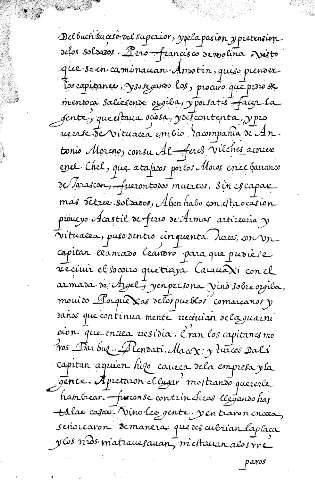 Del buen suceso del superior, y de la pasion, y pretension
de los soldados. Pero francisco de molina visto
que se encaminauan Amotin, quiso prender
los capitanes, y sosegando los, procuro que pedro de
mendoça saliese de orgiba, y por satisfazer la
gente, que estaua ociosa, y descontenta, y pro
ueerse de vitualla enbio la compañia de An
tonio Moreno, con su Alferez Vilches a correr
en el Chel, que atajados por los Moros en el barranco
de Tarascon, fueron todos muertos, sin escapar
mas de tres soldados, Aben habo con esta ocasion
proueyo A castil de ferro de Armas artilleria y
vitualla, puso dentro cinquenta turcos, con un
capitan llamado leandro para que pudiese
receuir el socorro que traya Carauaxi con el
armada de Argel, y en persona Vino sobre orgiba,
mouido Por quexas de los pueblos comarcanos y
daños que continua mente receuian de la guarni
sion que en ella residia. Eran los capitanes mo
ros Berbuz, Rendati, Macox, y turcos Dali
capitan a quien hizo caueça de la empresa y la
gente. Apretaron el lugar mostrando quererle
hambrear. fueronse con trincheas llegando has
ta las casas. Vino les gente, y entraron en ella,
señorearon de manera que descubrian la plaça
y los n̄ros ni atrauesauan, ni estauan a los re
paros